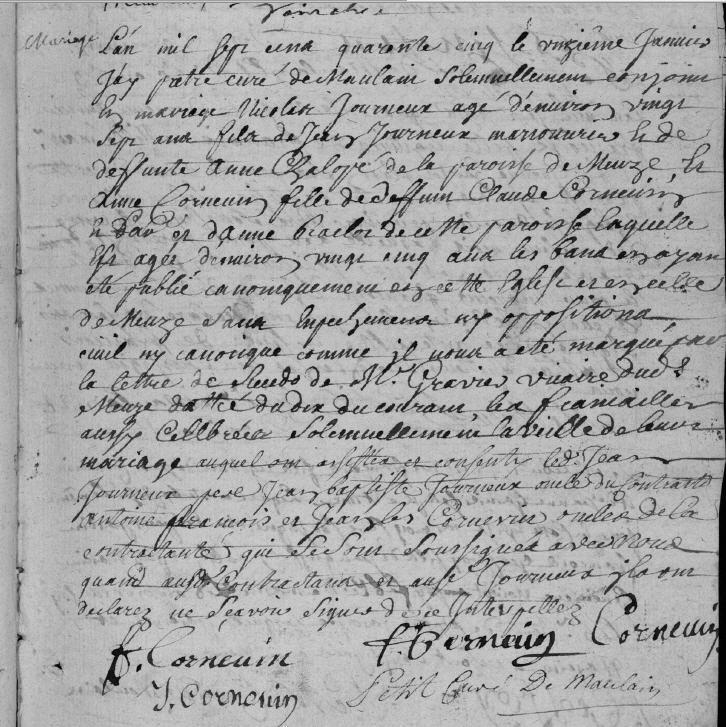 Mariage
L'an mil sept cens quarente cinq le unzième Janvier
J'ay prêtre curé de Maulain Solemnellement conjoint
En mariage Nicolas Journeux agé d'environ vingt
Sept ans fils de Jean Journeux manouvrier et de
deffunte Anne de la paroisse de Meuze, et
Anne Cornevin fille de deffunt Claude Cornevin
et d'anne de cette paroisse laquelle
Est agée d'environ vingt cinq ans les bans en ayant
été publié canoniquement en cette Eglise et en celle
de Meuze sans Empeschement ny oppositions
civil ny canonique comme il nous a été marqué par
la lettre de de Mr. Gravier vicaire dud
Meuze datté du dix du courant, les fiansailles
aussy Cellbrées Solemnellement la veille de leur
mariage auquel ont assistés et consentis led. Jean
Journeux pere Jean baptiste Journeux oncle du Contractant
antoine françois et Jean les Cornevin oncles de la
contractante qui se sont soussignés avec nous
quand aux Contractans et aux Journeux ils ont
declarez ne sçavoir signer de ce Interpellez
f. Cornevin
Cornevin
J. Cornevin
Petit Curé De Maulain